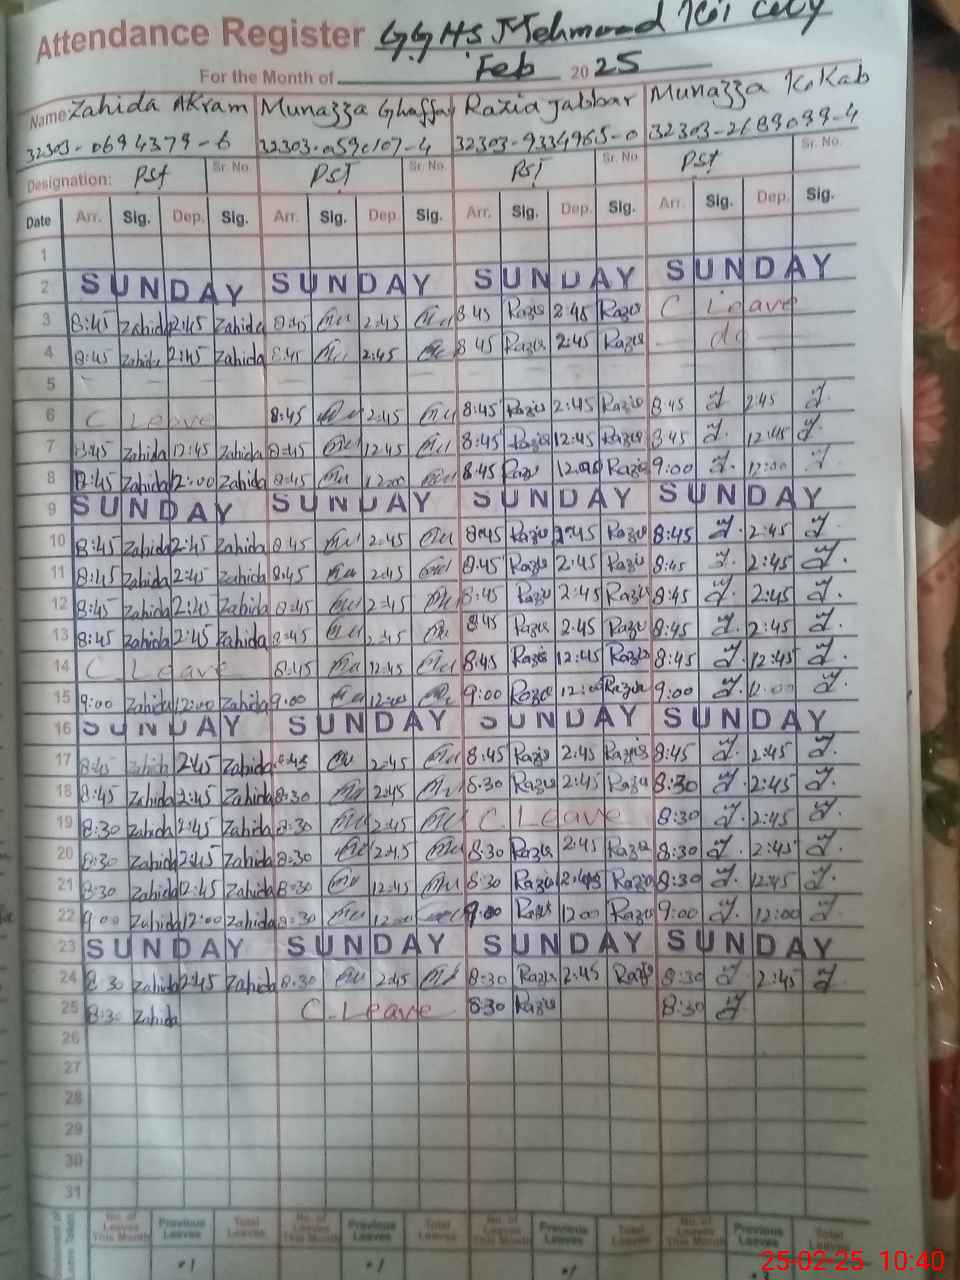 Attendance Register GGHS Mehmood Kot City
For the Month of Feb 2025
Name Zahida Akram Munazza Ghaffar Razia Jabbar Munazza Kokab
32303-0694379-6 32303-0590107-4 32303-9334965-0 32303-2689099-4
Designation: Pst Sr. No. PST Sr. No. PST Sr. No. Pst Sr. No.
Date Arr. Sig. Dep. Sig. Arr. Sig. Dep. Sig. Arr. Sig. Dep. Sig. Arr. Sig. Dep. Sig.
1
2 SUNDAY SUNDAY SUNDAY SUNDAY
3 8:45 Zahida 2:45 Zahida 8:45 2:45 8 45 Razia 2:45 Razia C Leave
4 8:45 Zahida 2:45 Zahida 8:45 2:45 8 45 Razia 2:45 Razia do
5
6 C Leave 8:45 2:45 8:45 Razia 2:45 Razia 8 45 2:45
7 8:45 Zahida 12:45 Zahida 8:45 12:45 8:45 Razia 12:45 Razia 8 45 12:45
8 8:45 Zahida 12:00 Zahida 8:45 12:00 8:45 Razia 12:00 Razia 9:00 12:00
9 SUNDAY SUNDAY SUNDAY SUNDAY
10 8:45 Zahida 2:45 Zahida 8:45 2:45 8:45 Razia 2:45 Razia 8:45 2:45
11 8:45 Zahida 2:45 Zahida 8:45 2:45 8:45 Razia 2:45 Razia 8:45 2:45
12 8:45 Zahida 2:45 Zahida 8:45 2:45 8:45 Razia 2:45 Razia 8:45 2:45
13 8:45 Zahida 2:45 Zahida 8:45 2:45 8:45 Razia 2:45 Razia 8:45 2:45
14 C Leave 8:45 12:45 8:45 Razia 12:45 Razia 8:45 12:45
15 9:00 Zahida 12:00 Zahida 9:00 12:00 9:00 Razia 12:00 Razia 9:00 12:00
16 SUNDAY SUNDAY SUNDAY SUNDAY
17 8:45 Zahida 2:45 Zahida 8:45 2:45 8:45 Razia 2:45 Razia 8:45 2:45
18 8:45 Zahida 2:45 Zahida 8:30 2:45 8:30 Razia 2:45 Razia 8:30 2:45
19 8:30 Zahida 2:45 Zahida 8:30 2:45 C. Leave 8:30 2:45
20 8:30 Zahida 2:45 Zahida 8:30 2:45 8:30 Razia 2:45 Razia 8:30 2:45
21 8:30 Zahida 12:45 Zahida 8:30 12:45 8:30 Razia 12:45 Razia 8:30 12:45
22 9:00 Zahida 12:00 Zahida 8:30 12:00 9:00 Razia 12 00 Razia 9:00 12:00
23 SUNDAY SUNDAY SUNDAY SUNDAY
24 8 30 Zahida 2:45 Zahida 8:30 2:45 8:30 Razia 2:45 Razia 8:30 2:45
25 8:30 Zahida C. Leave 8:30 Razia 8:30
26
27
28
29
30
31
No. of Leaves This Month Previous Leaves Total Leaves No. of Leaves This Month Previous Leaves Total Leaves No. of Leaves This Month Previous Leaves Total Leaves No. of Leaves This Month Previous Leaves Total Leaves
25-02-25 10:40